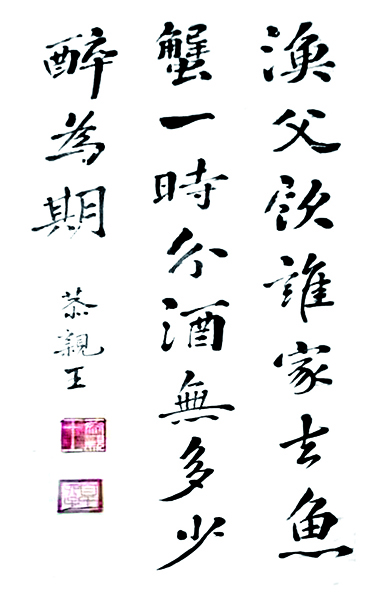 漁父飲誰家去魚
蟹一時分酒無多少
醉為期 恭親王